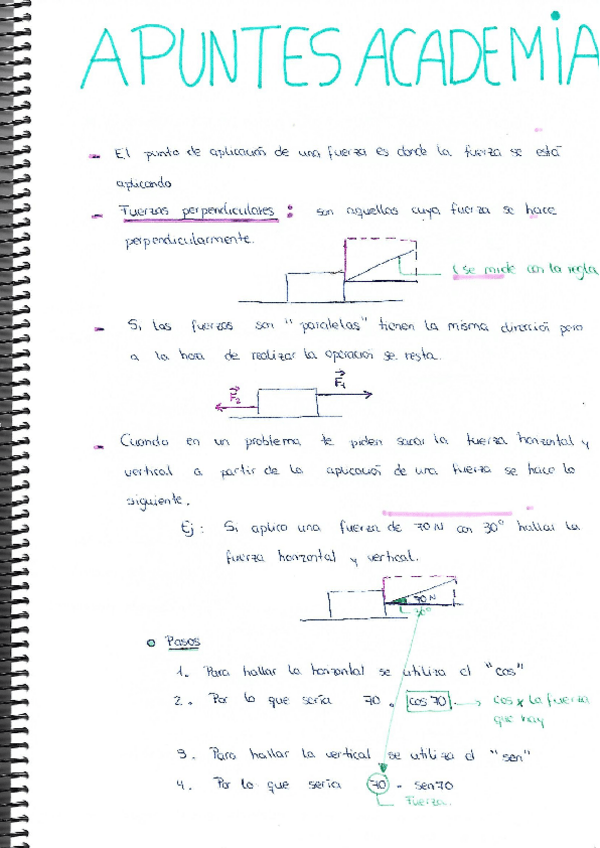 APUNTES ACADEMIA
- El punto de aplicación de una fuerza es donde la fuerza se está
aplicando
- Fuerzas perpendiculares : son aquellas cuya fuerza se hace
perpendicularmente.
(se mide con la regla
- Si las fuerzas son "paralelas" tienen la misma dirección pero
a la hora de realizar la operación se resta.
F2 F1
- Cuando en un problema te piden sacar la fuerza horizontal y
vertical a partir de la aplicación de una fuerza se hace lo
siguiente.
Ej: Si aplico una fuerza de 70N con 30° hallar la
fuerza horizontal y vertical.
70N
30°
Pasos
1. Para hallar la horizontal se utiliza el "cos"
2. Por lo que sería 70 . cos 70 . → cos x la fuerza
que hay
3. Para hallar la vertical se utiliza el "sen"
4. Por lo que sería 70 - sen70
Fuerza.